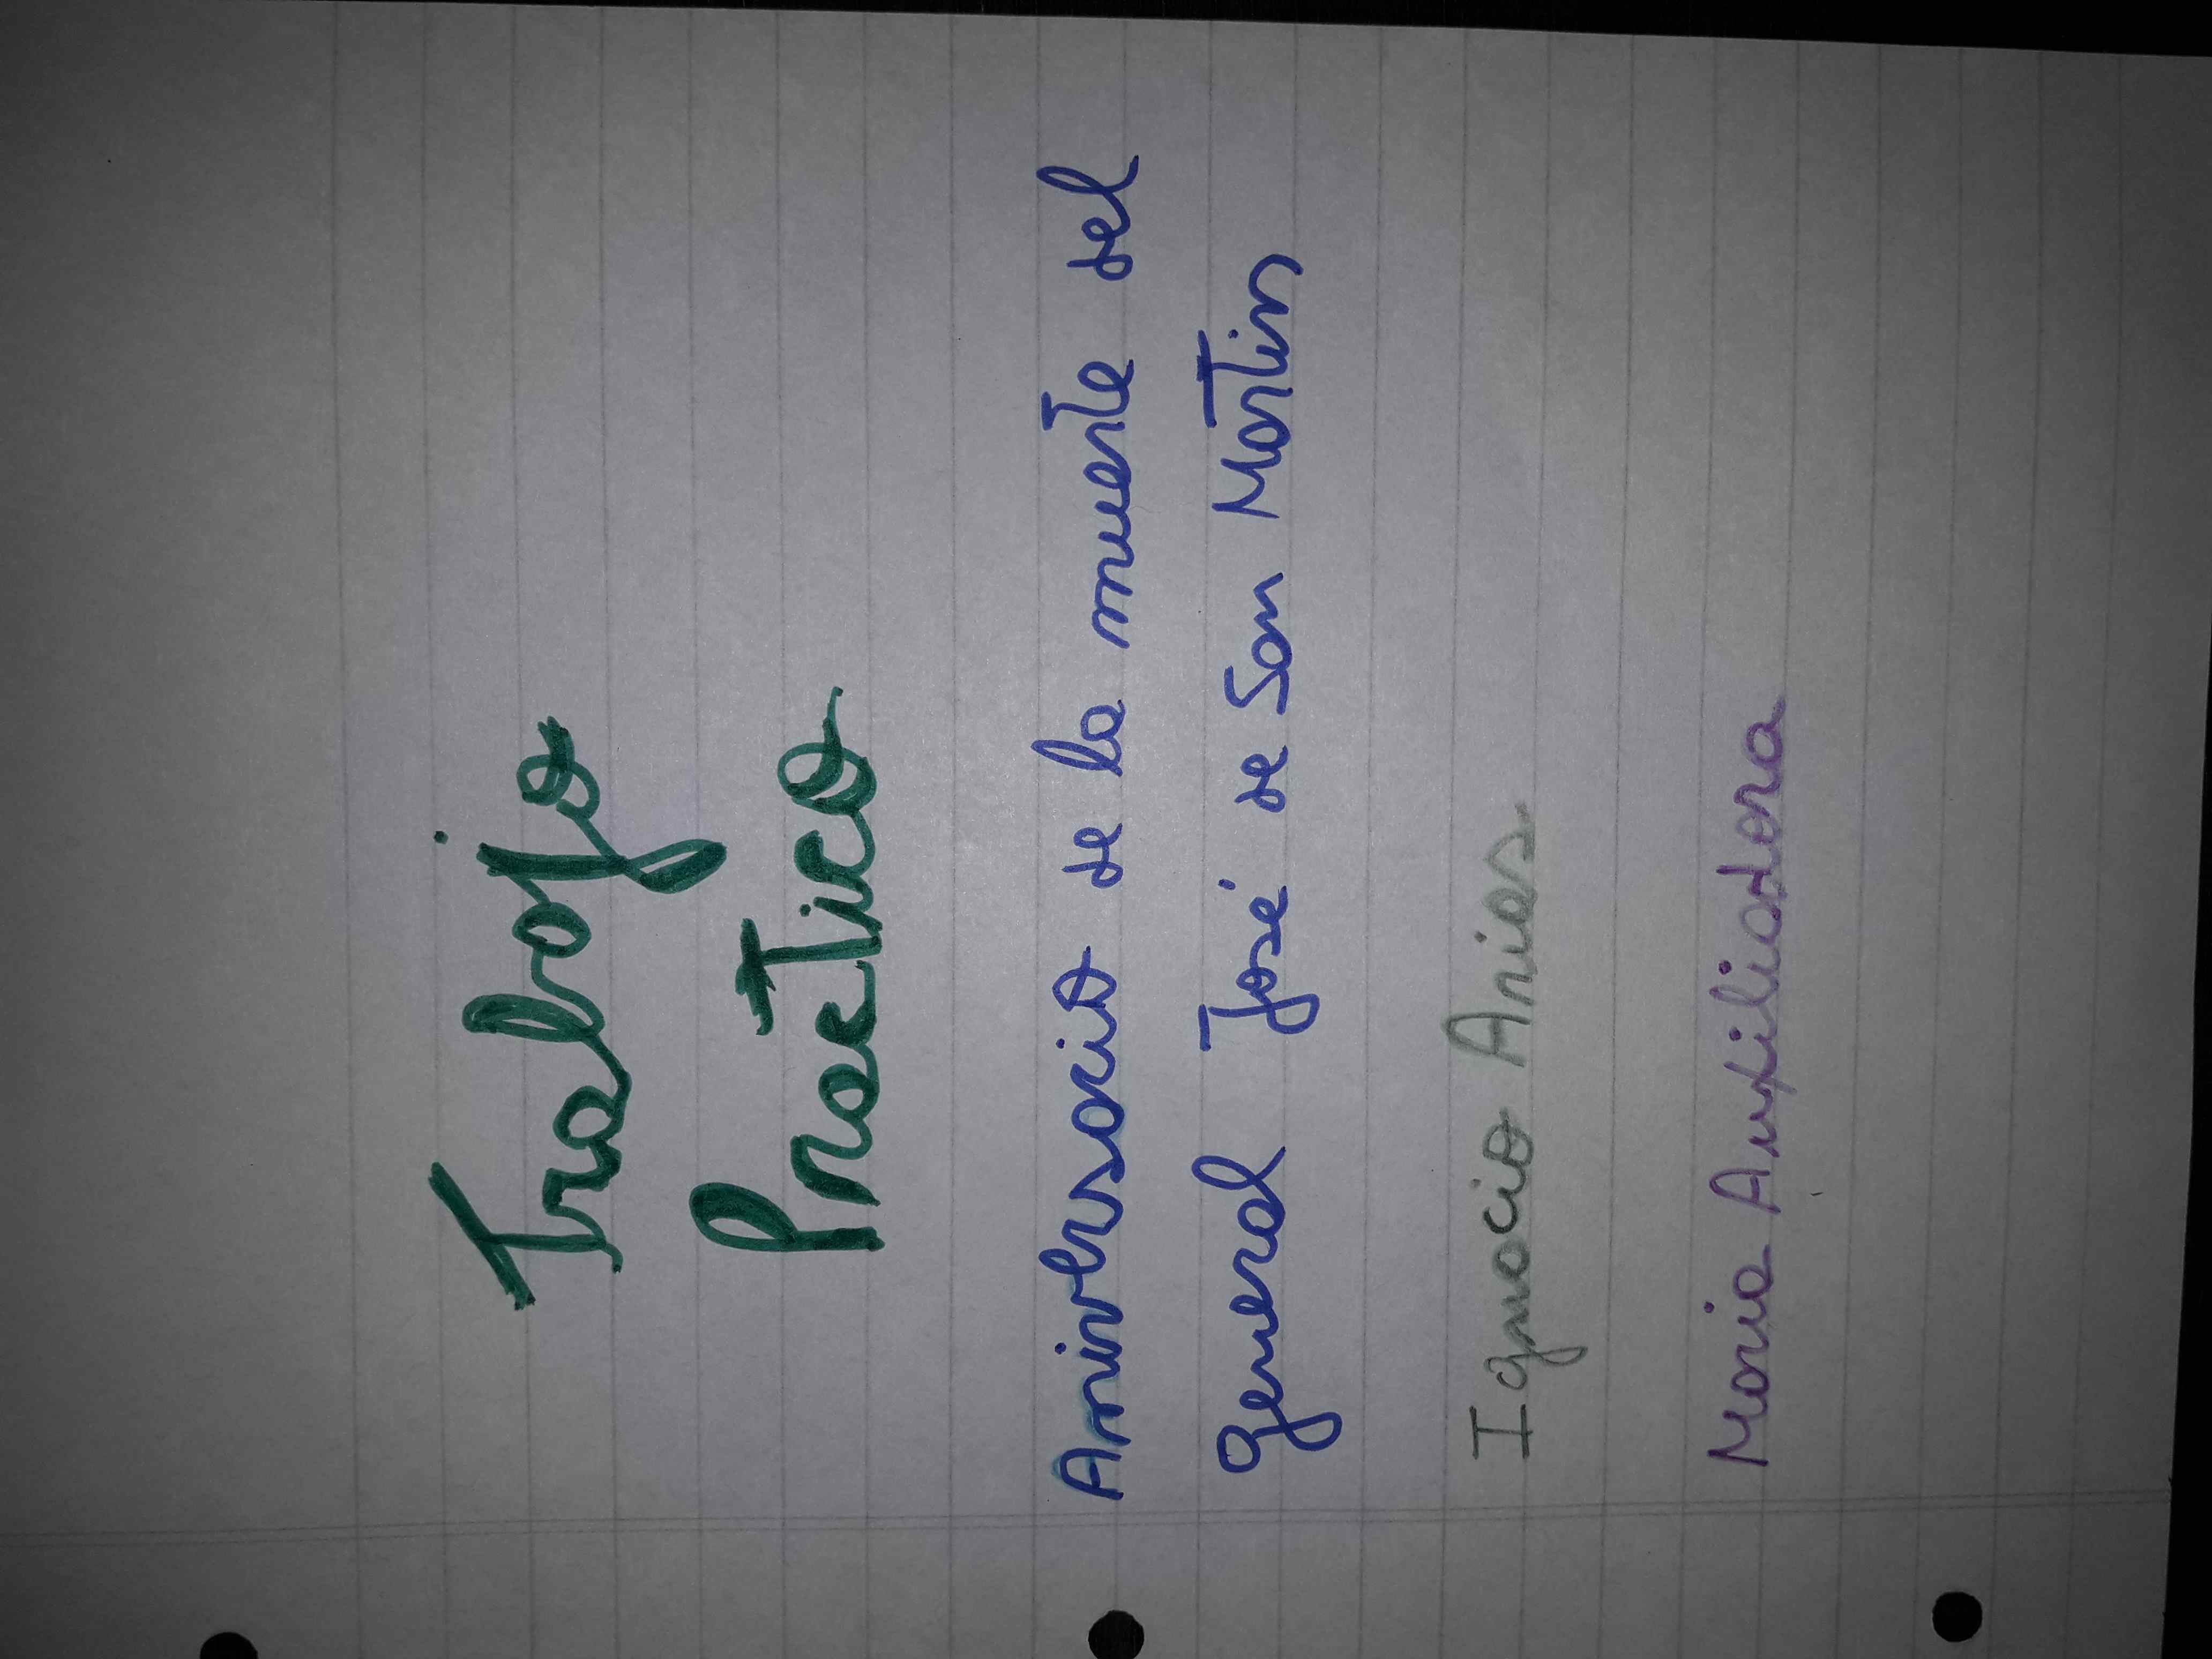 Trabajo
Practico
Aniversacio de la muerte del
General José de San Martin
Ignacio Aries.
Maria Auxiliadora